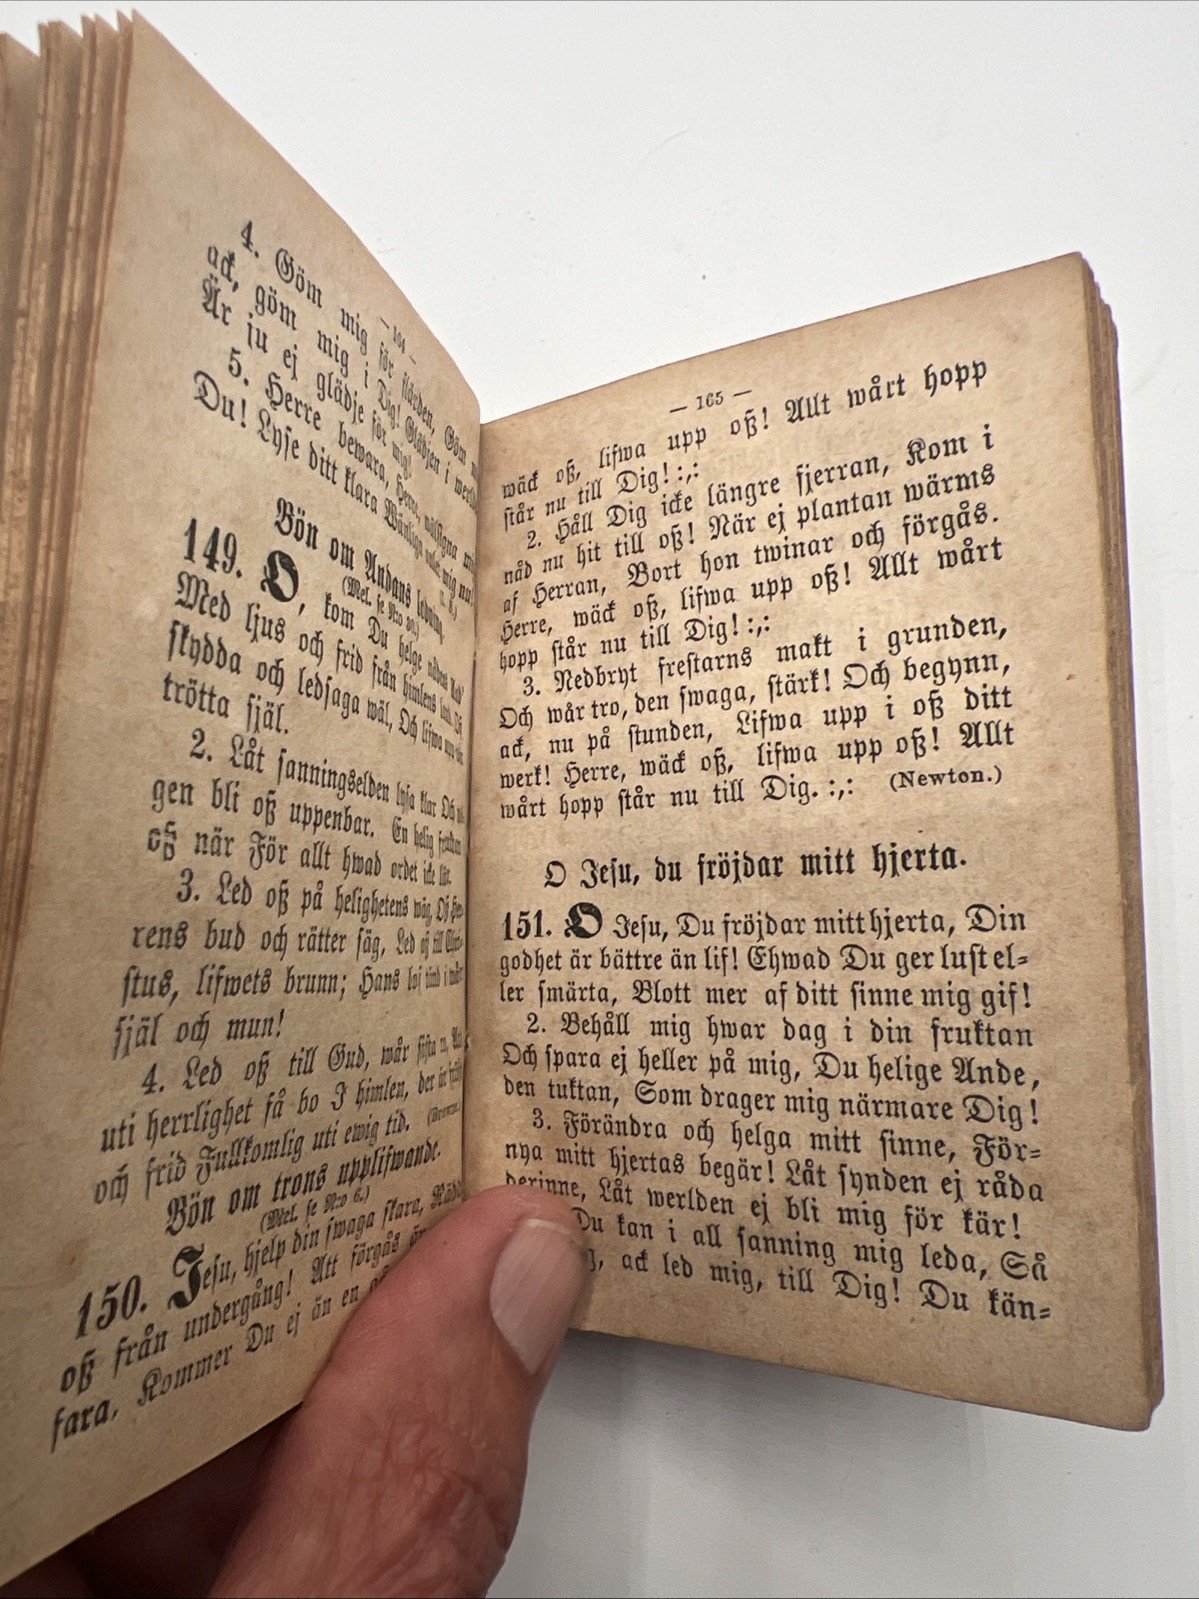 — 164 —
4. Göm mig för flärden, Göm
ack, göm mig i Dig! Glädjen i
Är ju ej glädje för mig!
5. Herre bewara, Herre, wälsigna mig
Du! Lyse ditt klara
Bön om Andans ledning.
(Mel. se N:o
149. O, kom Du helge nådens
Med ljus och frid från himlens
skydda och ledsaga wäl, Och lifwa upp
trötta själ.
2. Låt sanningselden lysa klar Och
gen bli oß uppenbar. En helig fruktan
oß när För allt hwad ordet icke lär.
3. Led oß på helighetens wäg, Oß Her-
rens bud och rätter säg, Led oß till Chri-
stus, lifwets brunn; Hans lof in i wår
själ och mun!
4. Led oß till Gud, wår
uti herrlighet få bo I himlen, der är
och frid Fullkomlig uti ewig tid. (Brown.)
Bön om trons upplifwande.
(Mel. se N:o 6.)
150. Jesu, hjelp din swaga skara,
oß från undergång! Att förgås
fara, Kommer Du ej än en
— 165 —
wäck oß, lifwa upp oß! Allt wårt hopp
står nu till Dig! :,:
2. Håll Dig icke längre fjerran, Kom i
nåd nu hit till oß! När ej plantan wärms
af Herran, Bort hon twinar och förgås.
Herre, wäck oß, lifwa upp oß! Allt wårt
hopp står nu till Dig! :,:
3. Nedbryt frestarns makt i grunden,
Och wår tro, den swaga, stärk! Och begynn,
ack, nu på stunden, Lifwa upp i oß ditt
werk! Herre, wäck oß, lifwa upp oß! Allt
wårt hopp står nu till Dig. :,: (Newton.)
O Jesu, du fröjdar mitt hjerta.
151. O Jesu, Du fröjdar mitt hjerta, Din
godhet är bättre än lif! Ehwad Du ger lust el-
ler smärta, Blott mer af ditt sinne mig gif!
2. Behåll mig hwar dag i din fruktan
Och spara ej heller på mig, Du helige Ande,
den tuktan, Som drager mig närmare Dig!
3. Förändra och helga mitt sinne, För-
nya mitt hjertas begär! Låt synden ej råda
derinne, Låt werlden ej bli mig för kär!
Du kan i all sanning mig leda, Så
ack led mig, till Dig! Du kän-